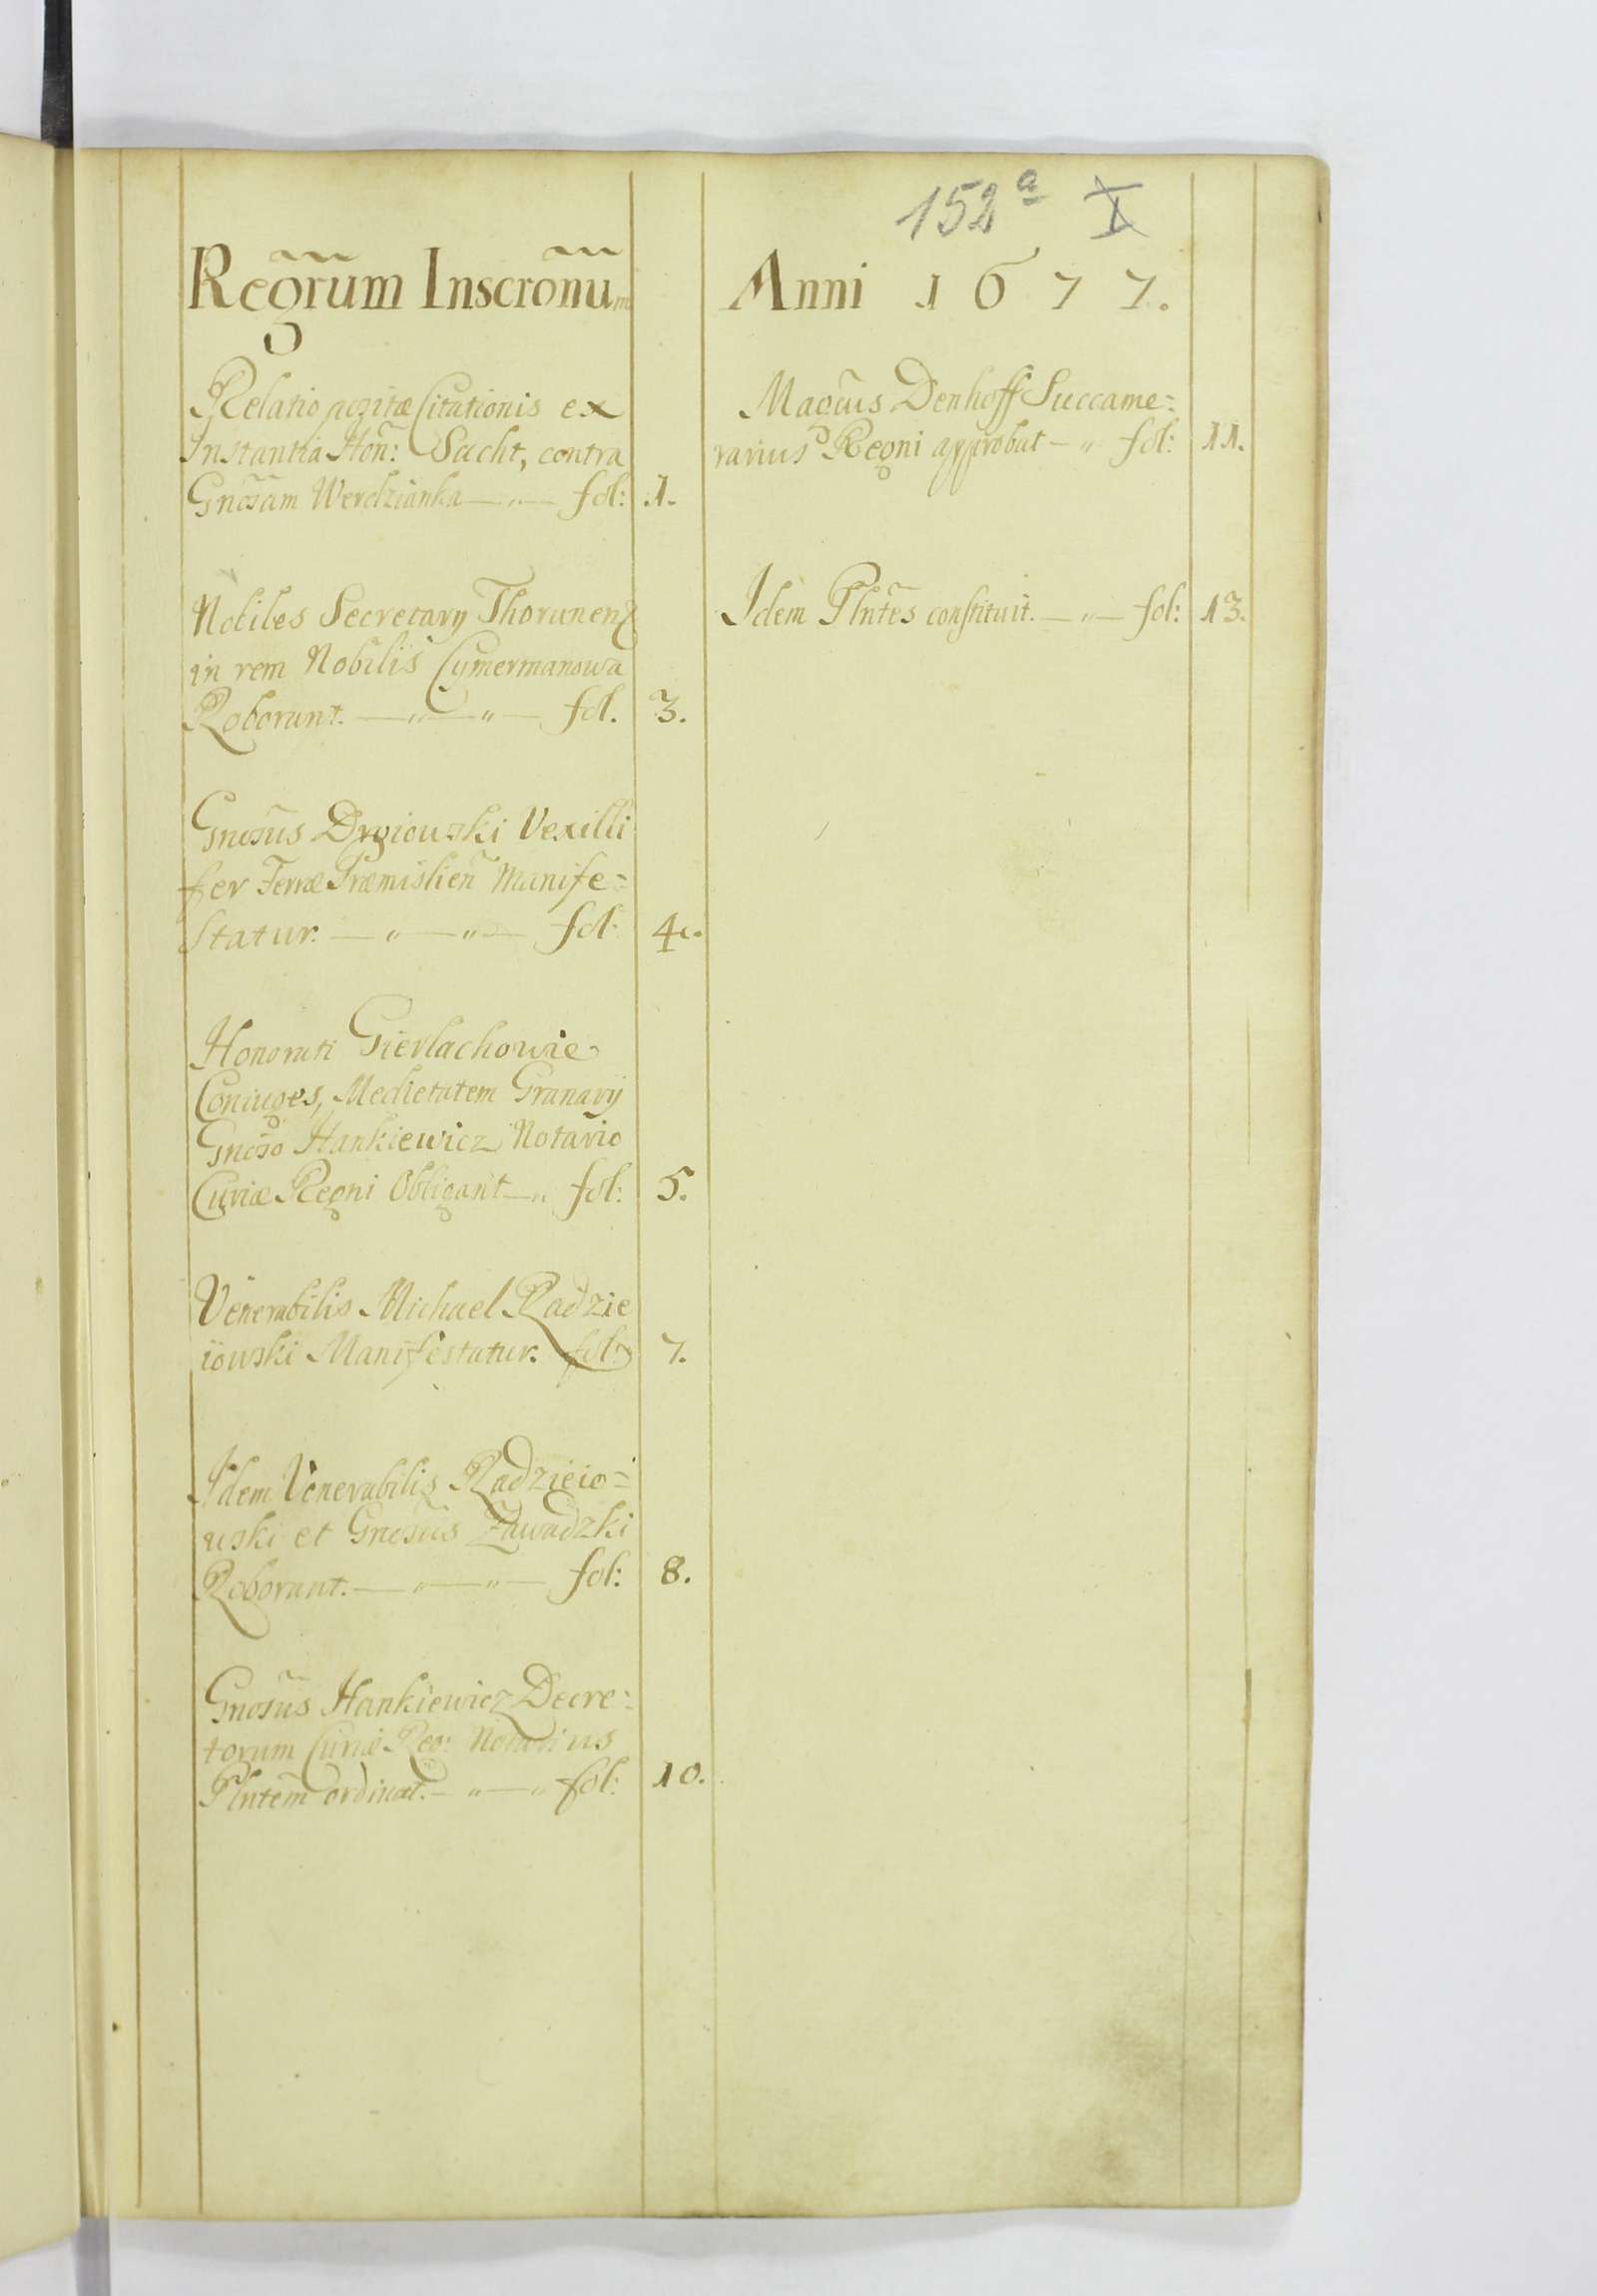 152a X
Regrum Inscronum
Anni 1677.
Relatio pozitæ Citationis ex
Instantia Hon: Sacht, contra
Gnosam Werdzianka — „ — fol: 1.
Nobiles Secretary Thorunen
in rem Nobilis Cymermanowa
Roborant. — „ — „ — fol. 3.
Gnosus Drgiouski Vexilli
fer Terræ Præmislien Manife=
statur. — „ — „ — fol: 4.
Honorati Gierlachowie
Coniuges, Medietatem Granarÿ
Gnoso Hankiewicz Notario
Curiæ Regni Obligant — „ fol: 5.
Venerabilis Michael Radzie
iowski Manifestatur. fol: 7.
Idem Venerabilis Radzieio=
uski et Gnosus Zawadzki
Roborant. — „ — „ — fol: 8.
Gnosus Hankiewicz Decre=
torum Curiæ Reg: Notarius
Plntem ordinat. — „ — „ fol: 10.
Magcus Denhoff Succame=
rarius Regni approbat — „ fol: 11.
Idem Plntes constituit. — „ — fol: 13.